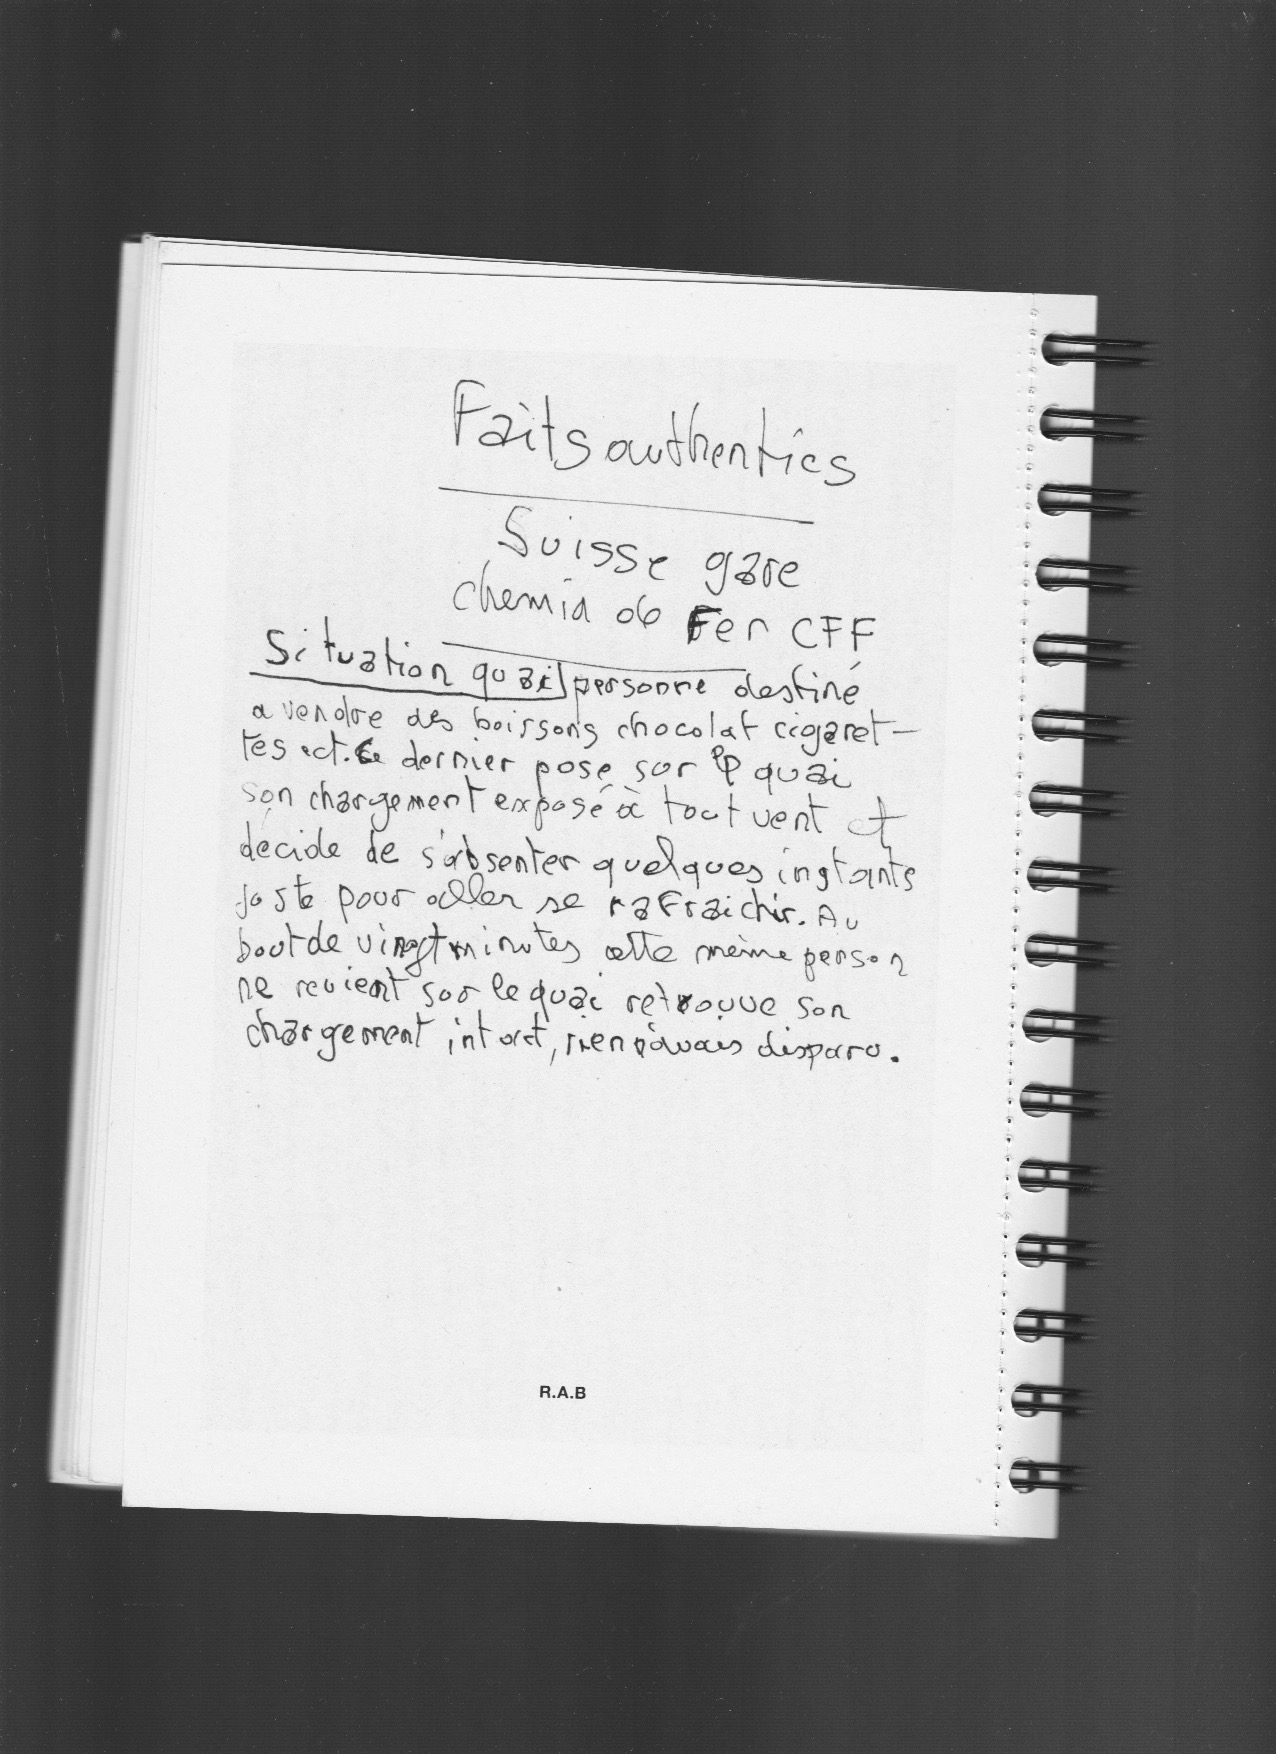 Faits authentics
Suisse gare
chemin de Fer CFF
Situation quai personne destiné
a vendre des boissons chocolat cigaret-
tes ect. Ce dernier pose sur le quai
son chargement exposé à tout vent et
décide de s'absenter quelques instants
juste pour aller se rafraichir. Au
bout de vingt minutes cette même person
ne revient sur le quai retrouve son
chargement intact, rien n'avais disparu.
R.A.B